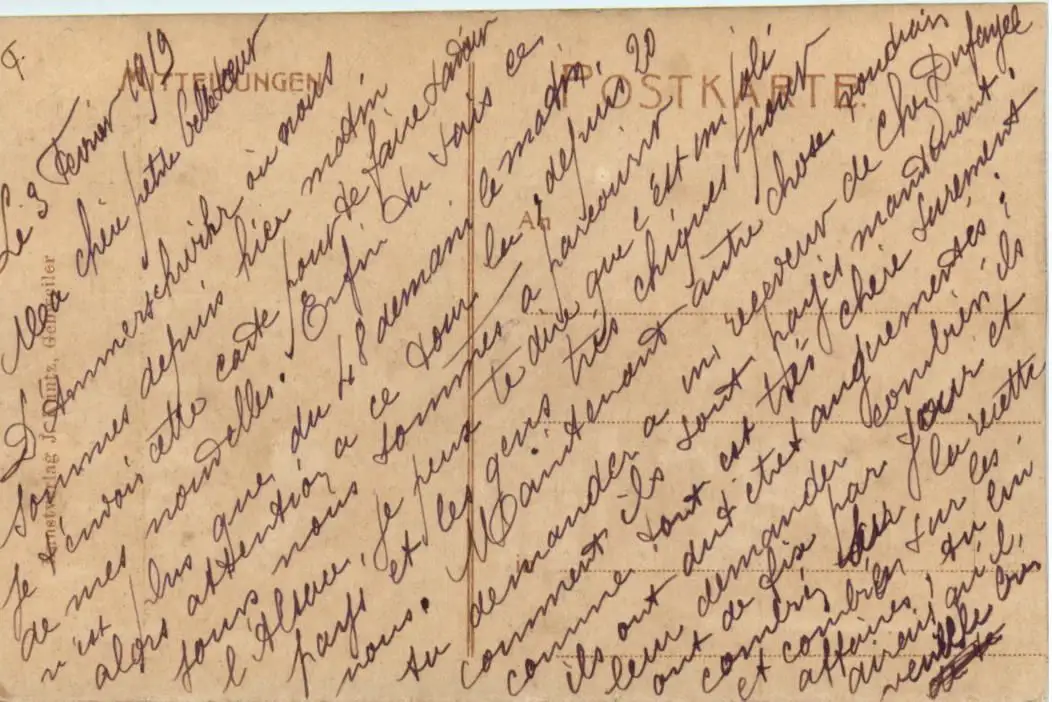 F.
MITTEILUNGEN
POSTKARTE
An
Kunstverlag J. Gebweiler
Le 3 Fevrier 1919
Ma chère petite belle sœur
D'Ammerschwihr où nous
sommes depuis hier matin
Je t'envois cette carte pour te faire savoir
de mes nouvelles. Enfin tu vois ce
n'est plus que du 48 demani le matin,
alors attention a ce tour la, depuis 20
jours nous sommes a parcourir
l'Alsace, je peux te dire que c'est un joli
pays et les gens très chiques pour
nous. Maintenant autre chose voudrais
tu demander a un receveur de chez Dufayel
comment ils sont payés maintenant.
comme tout est très chère sûrement
ils ont dut etres augmentés ;
leur demander combien ils
ont de fix par jour et
la recette
et combien sur les
affaires, tu lui
dirais qu'il
veuille